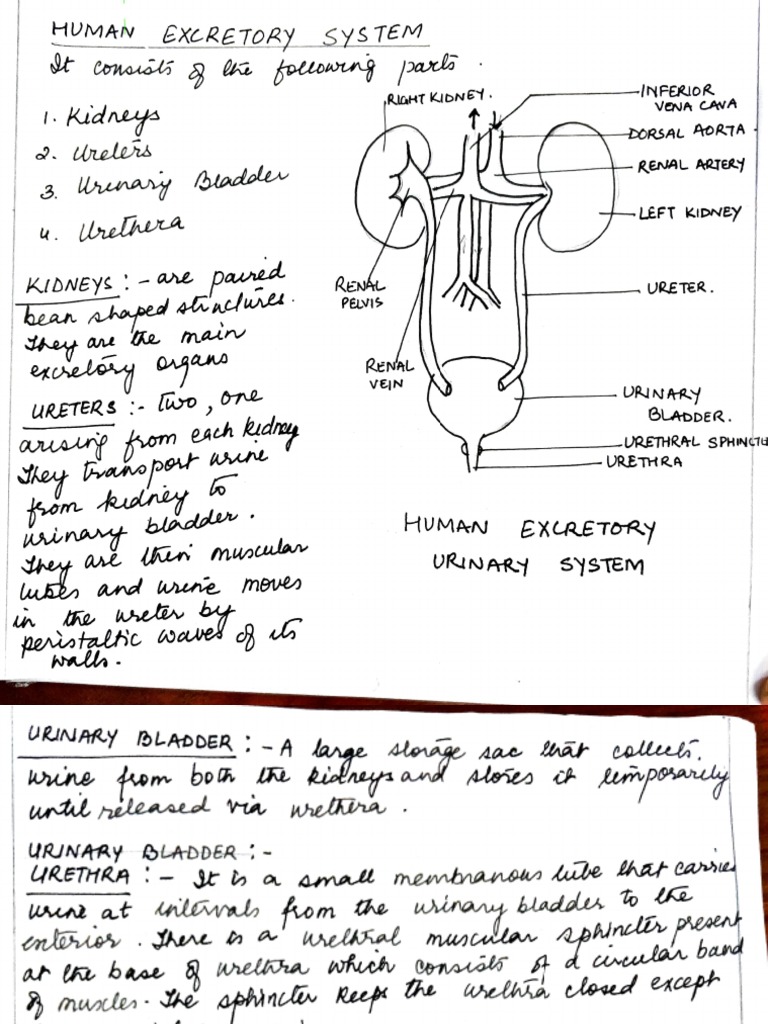 HUMAN EXCRETORY SYSTEM
It consists of the following parts.
1. Kidneys
2. Ureters
3. Urinary Bladder
4. Urethera
RIGHT KIDNEY.
INFERIOR
VENA CAVA
DORSAL AORTA
RENAL ARTERY
LEFT KIDNEY
RENAL
PELVIS
URETER.
RENAL
VEIN
URINARY
BLADDER.
URETHRAL SPHINCTE
URETHRA
HUMAN EXCRETORY
URINARY SYSTEM
KIDNEYS :- are paired
bean shaped structures.
They are the main
excretory organs
URETERS :- Two, one
arising from each kidney
They transport urine
from kidney to
urinary bladder.
They are thin muscular
tubes and urine moves
in the ureter by
peristaltic waves of its
walls.
URINARY BLADDER :- A large storage sac that collects.
urine from both the kidneys and stores it temporarily
until released via urethera.
URINARY BLADDER :-
URETHRA :- It is a small membranous tube that carries
urine at intervals from the urinary bladder to the
exterior. There is a urethral muscular sphincter present
at the base of urethra which consists of a circular band
of muscles. The sphincter keeps the urethra closed except